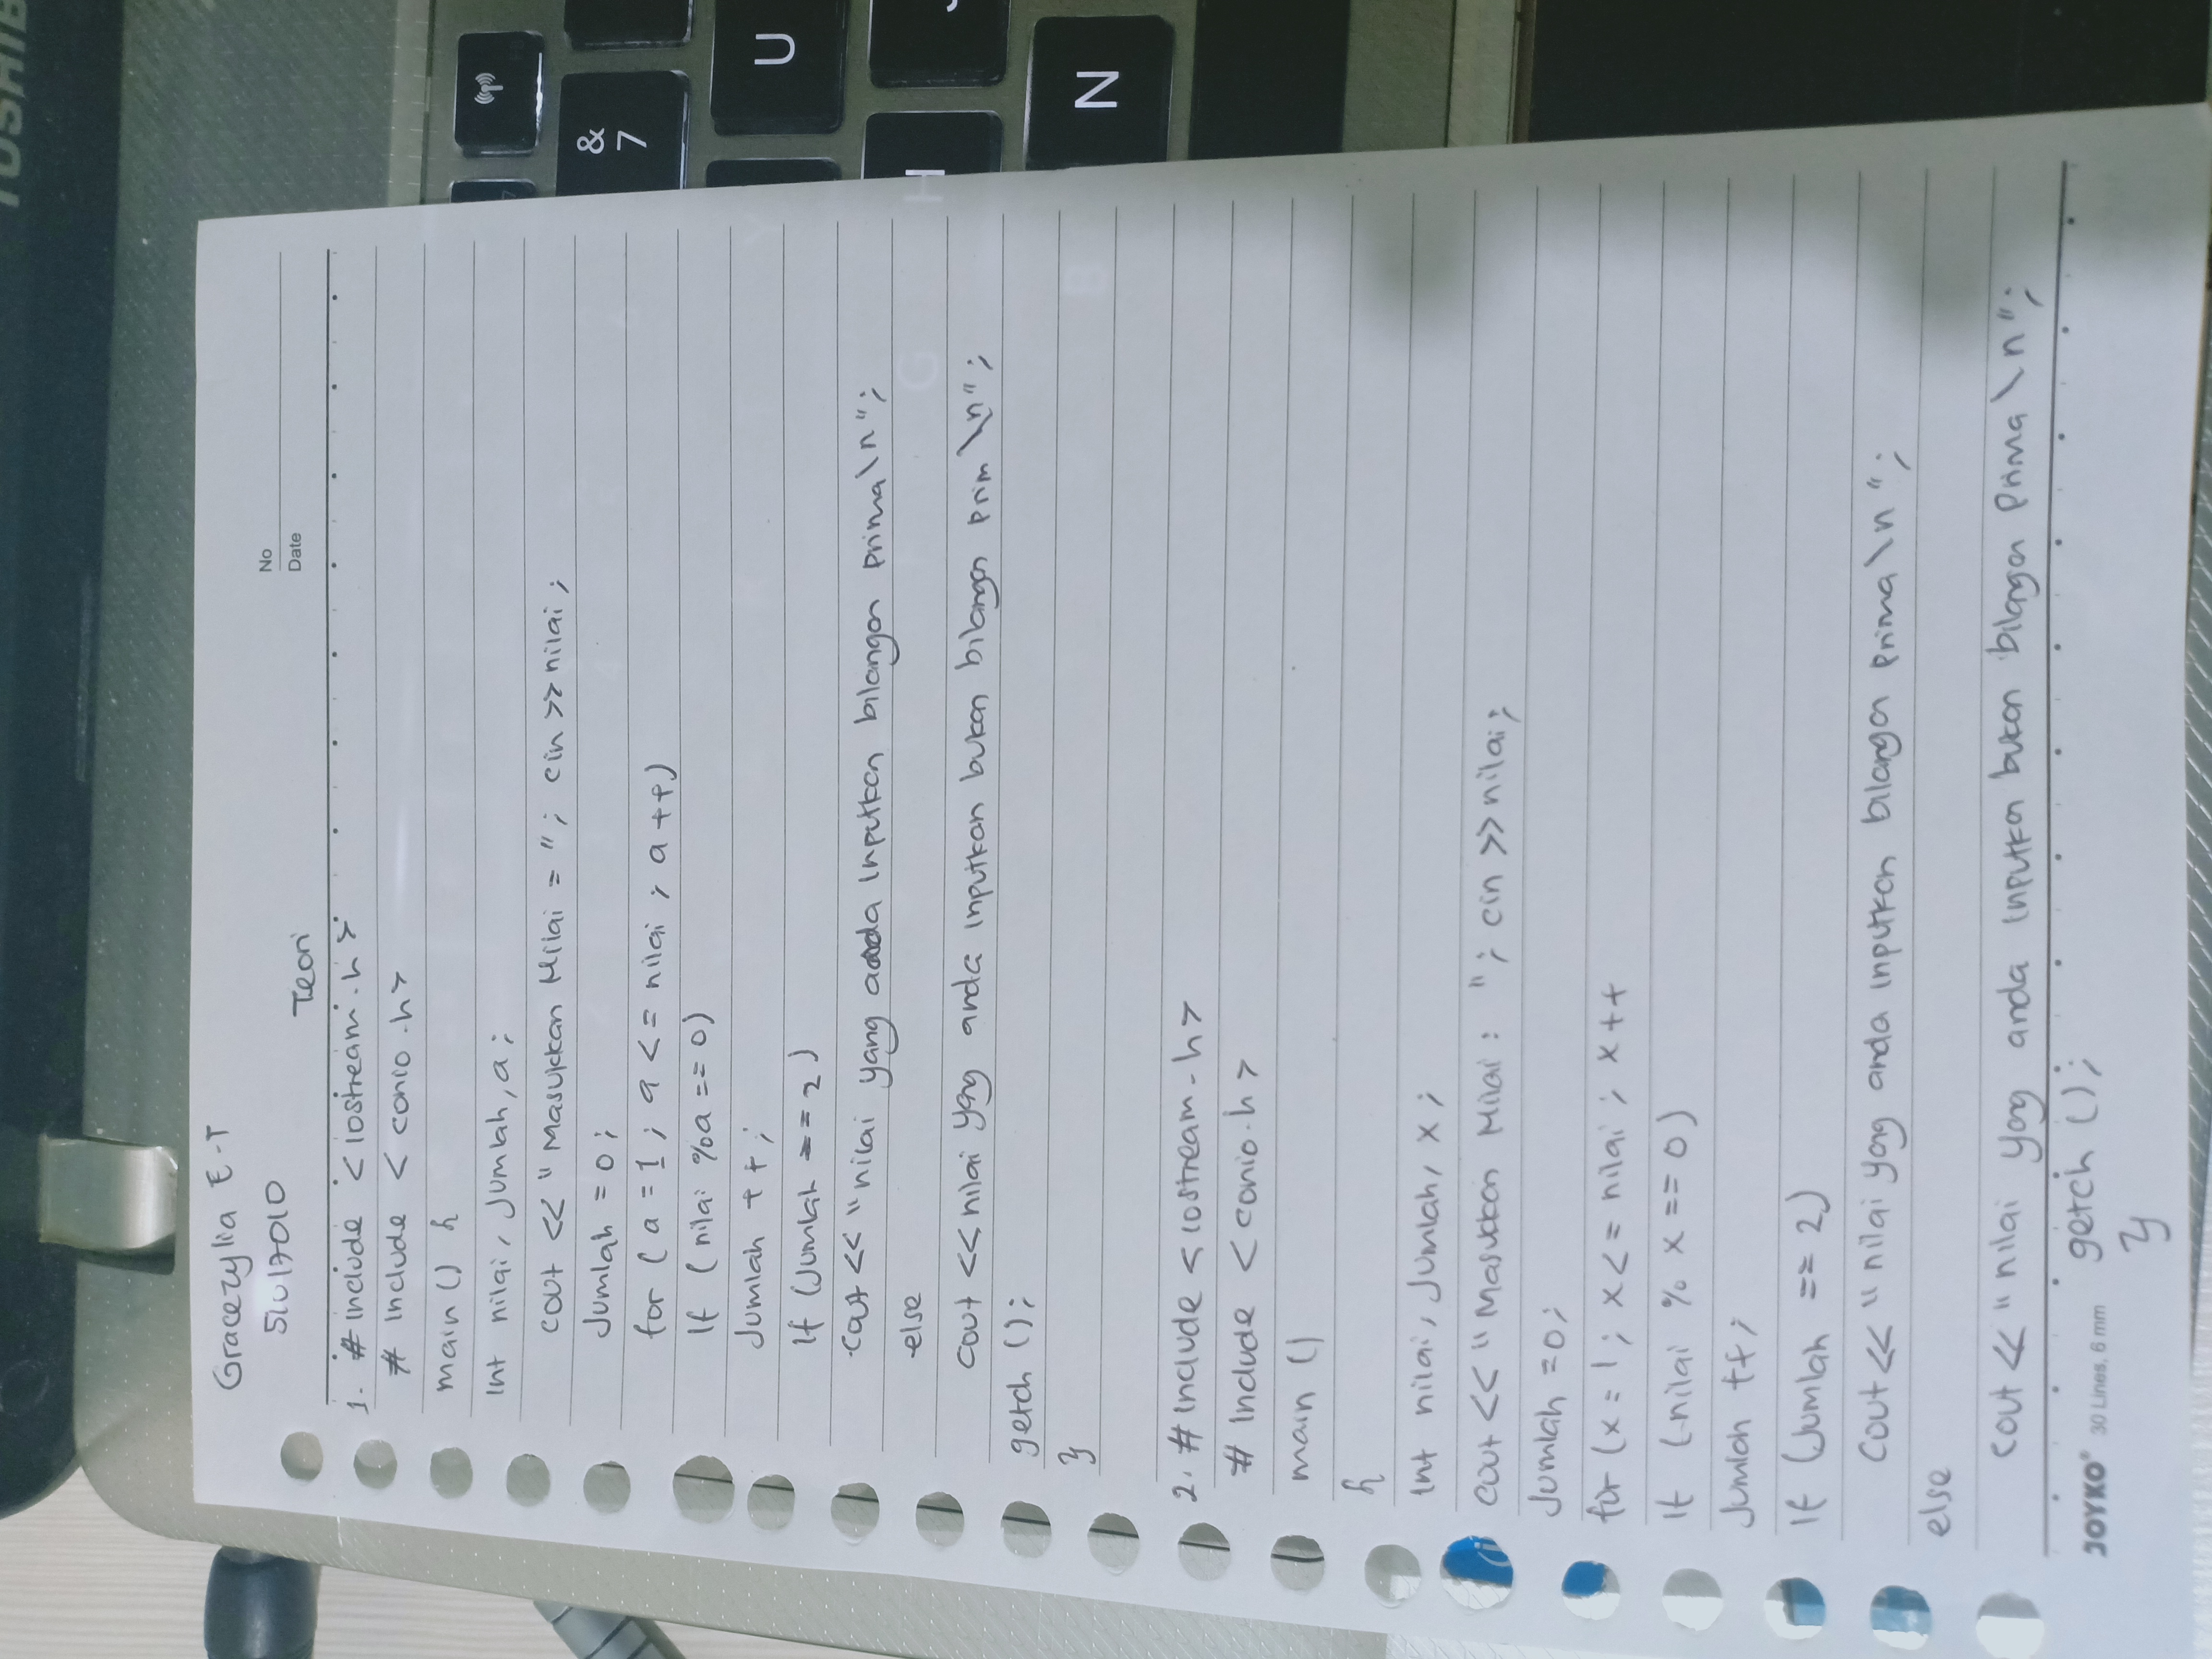 TOSHIB
U
& 7
H
N
No
Date
Gracezylia E-T
Teori
1. # Include < Iostream.h>
# Include < conio.h>
main () {
Int nilai, Jumlah, a;
cout << "Masukkan Nilai = "; cin >> nilai;
Jumlah = 0;
for ( a = 1 ; a <= nilai ; a ++)
If ( nilai %a == 0)
Jumlah ++;
If (Jumlah == 2)
cout << "nilai yang anda Inputkan bilangan prima\n";
else
cout << nilai yang anda Inputkan bukan bilangan prim \n";
getch ();
}
2. # Include < Iostream.h>
# Include < conio.h>
main ()
{
Int nilai, Jumlah, x;
cout << "Masukkan Nilai : "; cin >> nilai;
Jumlah =0;
for (x = 1; x <= nilai; x ++
If (nilai % x == 0)
Jumlah ++;
If (Jumlah == 2)
Cout << "nilai yang anda Inputkan bilangan Prima \n";
else
cout << "nilai yang anda Inputkan bukan bilangan Prima \n";
JOYKO® 30 Lines, 6 mm getch ();
}